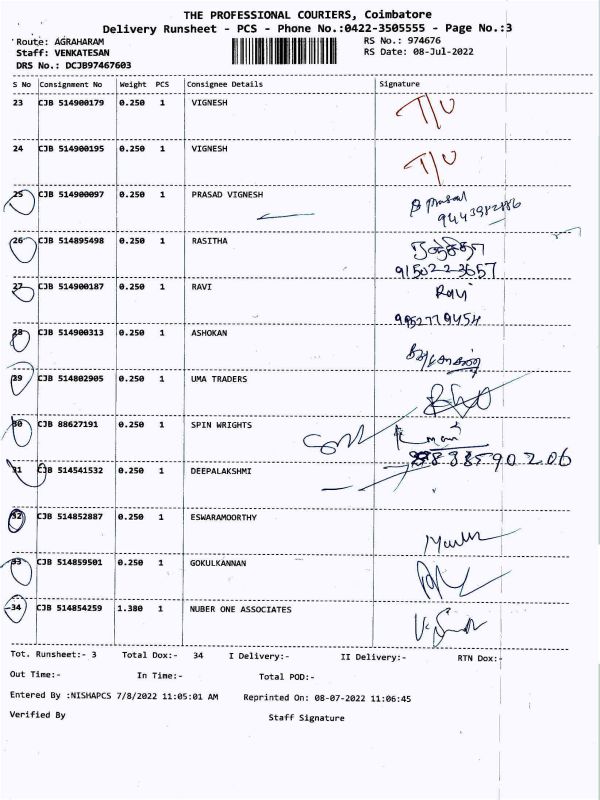 THE PROFESSIONAL COURIERS, Coimbatore
Delivery Runsheet - PCS - Phone No.:0422-3505555 - Page No.:3
Route: AGRAHARAM
RS No.: 974676
Staff: VENKATESAN
RS Date: 08-Jul-2022
DRS No.: DCJB97467603
S No Consignment No Weight PCS Consignee Details Signature
23 CJB 514900179 0.250 1 VIGNESH T/U
24 CJB 514900195 0.250 1 VIGNESH T/U
25 CJB 514900097 0.250 1 PRASAD VIGNESH Prasad
26 CJB 514895498 0.250 1 RASITHA
9150223657
27 CJB 514900187 0.250 1 RAVI Ravi
9952779454
28 CJB 514900313 0.250 1 ASHOKAN
29 CJB 514802905 0.250 1 UMA TRADERS
30 CJB 88627191 0.250 1 SPIN WRIGHTS
31 CJB 514541532 0.250 1 DEEPALAKSHMI
32 CJB 514852887 0.250 1 ESWARAMOORTHY
33 CJB 514859501 0.250 1 GOKULKANNAN
34 CJB 514854259 1.380 1 NUBER ONE ASSOCIATES
Tot. Runsheet:- 3 Total Dox:- 34 I Delivery:- II Delivery:- RTN Dox:-
Out Time:- In Time:- Total POD:-
Entered By :NISHAPCS 7/8/2022 11:05:01 AM Reprinted On: 08-07-2022 11:06:45
Verified By Staff Signature